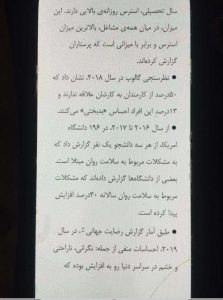 سال تحصیلی، استرس روزانه‌ی بالایی دارند. این
میزان، در میان همه‌ی مشاغل، بالاترین میزان
استرس و برابر با میزانی است که پرستاران
گزارش کرده‌اند.
• نظرسنجی گالوپ در سال ۲۰۱۸، نشان داد که
۵۰درصد از کارمندان به کارشان علاقه ندارند و
۱۳درصد این افراد احساس «بدبختی» می‌کنند.
• از سال ۲۰۱۶ تا ۲۰۱۷، در ۱۹۶ دانشگاه
امریکا، از هر سه دانشجو یک نفر گزارش داد که
به مشکلات مربوط به سلامت روان مبتلا است.
بعضی از دانشگاه‌ها گزارش داده‌اند که مشکلات
مربوط به سلامت روان سالانه ۳۰درصد افزایش
پیدا کرده است.
• طبق آمار گزارش رضایت جهانی۲، در سال
۲۰۱۹، احساسات منفی از جمله: نگرانی، ناراحتی
و خشم در سراسر دنیا رو به افزایش بوده که